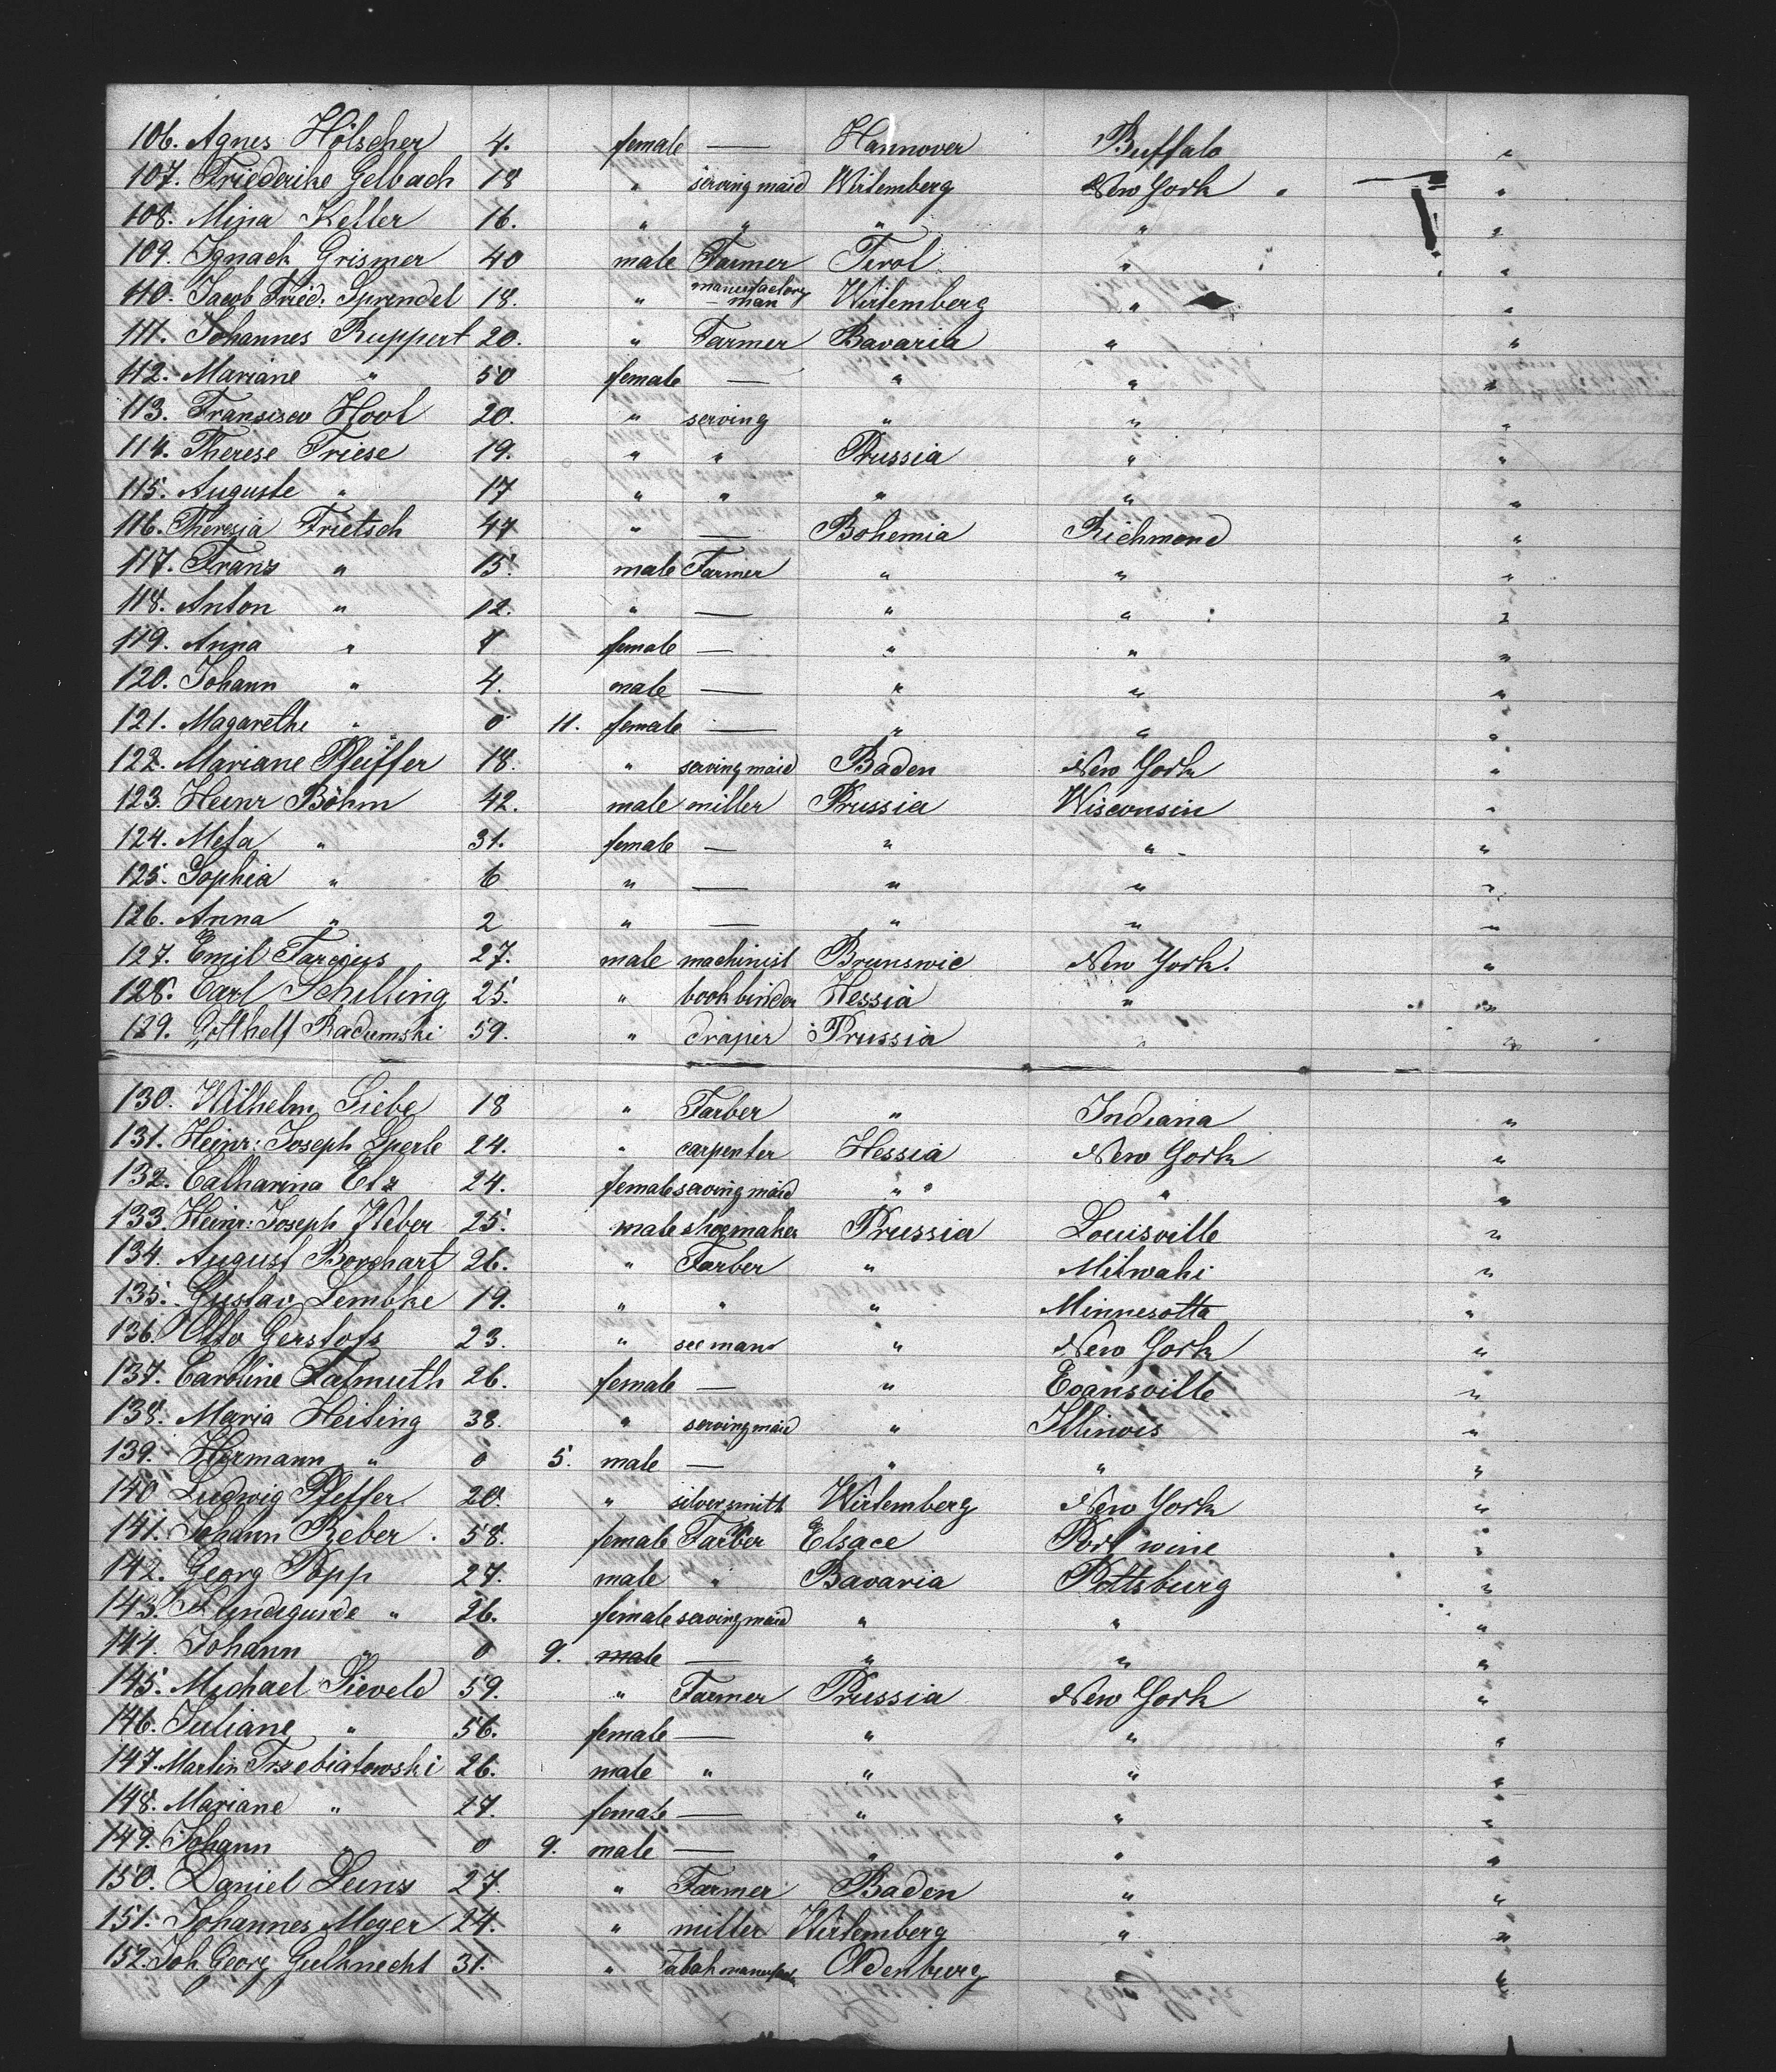 106. Agnes Hölscher 4. female — Hannover Buffalo "
107. Friederike Gelbach 18 " serving maid Wirtemberg New York "
108. Mina Keller 16. " " " " "
109. Ignack Grismer 40 male Farmer Tirol " "
110. Jacob Fried. Sprendel 18. " manufactory man Wirtemberg " "
111. Johannes Ruppert 20. " Farmer Bavaria " "
112. Mariane " 50 female — " " "
113. Fransisca Hool 20. " serving " " "
114. Therese Friese 19. " " Prussia " "
115. Auguste " 17 " " " " "
116. Theresia Frietsch 47 " — Bohemia Richmond "
117. Franz " 15. male Farmer " " "
118. Anton " 12. " — " " "
119. Anna " 7 female — " " "
120. Johann " 4. male — " " "
121. Magarethe " 0 11. female — " " "
122. Mariane Pfeiffer 18. " serving maid Baden New York "
123. Heinr Böhm 42. male miller Prussia Wisconsin "
124. Meta " 31. female — " " "
125. Sophia " 6 " — " " "
126. Anna " 2 " — " " "
127. Emil 27. male machinist Brunswic New York. "
128. Carl Schilling 25. " bookbinder Hessia " "
129. Gotthelf Radumski 59. " draper Prussia " "
130. Wilhelm Liebe 18 " Farber " Indiana "
131. Heinr: Joseph Eperle 24. " carpenter Hessia New York "
132. Catharina Elz 24. female serving maid " " "
133. Heinr: Joseph Weber 25. male shoemaker Prussia Louisville "
134. August Borghart 26. " Farber " Milwaki "
135. Gustav Lembke 19. " " " Minnesotta "
136. Otto Gerstofs 23. " seeman " New York "
137. Caroline Falmuth 26. female — " Evansville "
138. Maria Heiting 38. " serving maid " Illinois "
139. Hermann " 0 5. male — " " "
140 Ludwig Pfeffer. 20. " silversmith Wirtemberg New York "
141. Johann Reber 58. female Farber Elsace Port wine "
142. Georg Popp 27. male " Bavaria Pittsburg "
143. Kundegunde " 26. female serving maid " " "
144. Johann " 0 9. male — " " "
145. Michael Sieveld 59. " Farmer Prussia New York "
146. Juliane " 56. female — " " "
147. Martin Trzebiatowski 26. male " " " "
148. Mariane " 27. female — " " "
149. Johann " 0 9. male — " " "
150. Daniel Lunz 27. " Farmer Baden " "
151. Johannes Meyer 24. " miller Wirtemberg " "
152. Joh. Georg Gutknecht 31. " Tabak Oldenburg " "